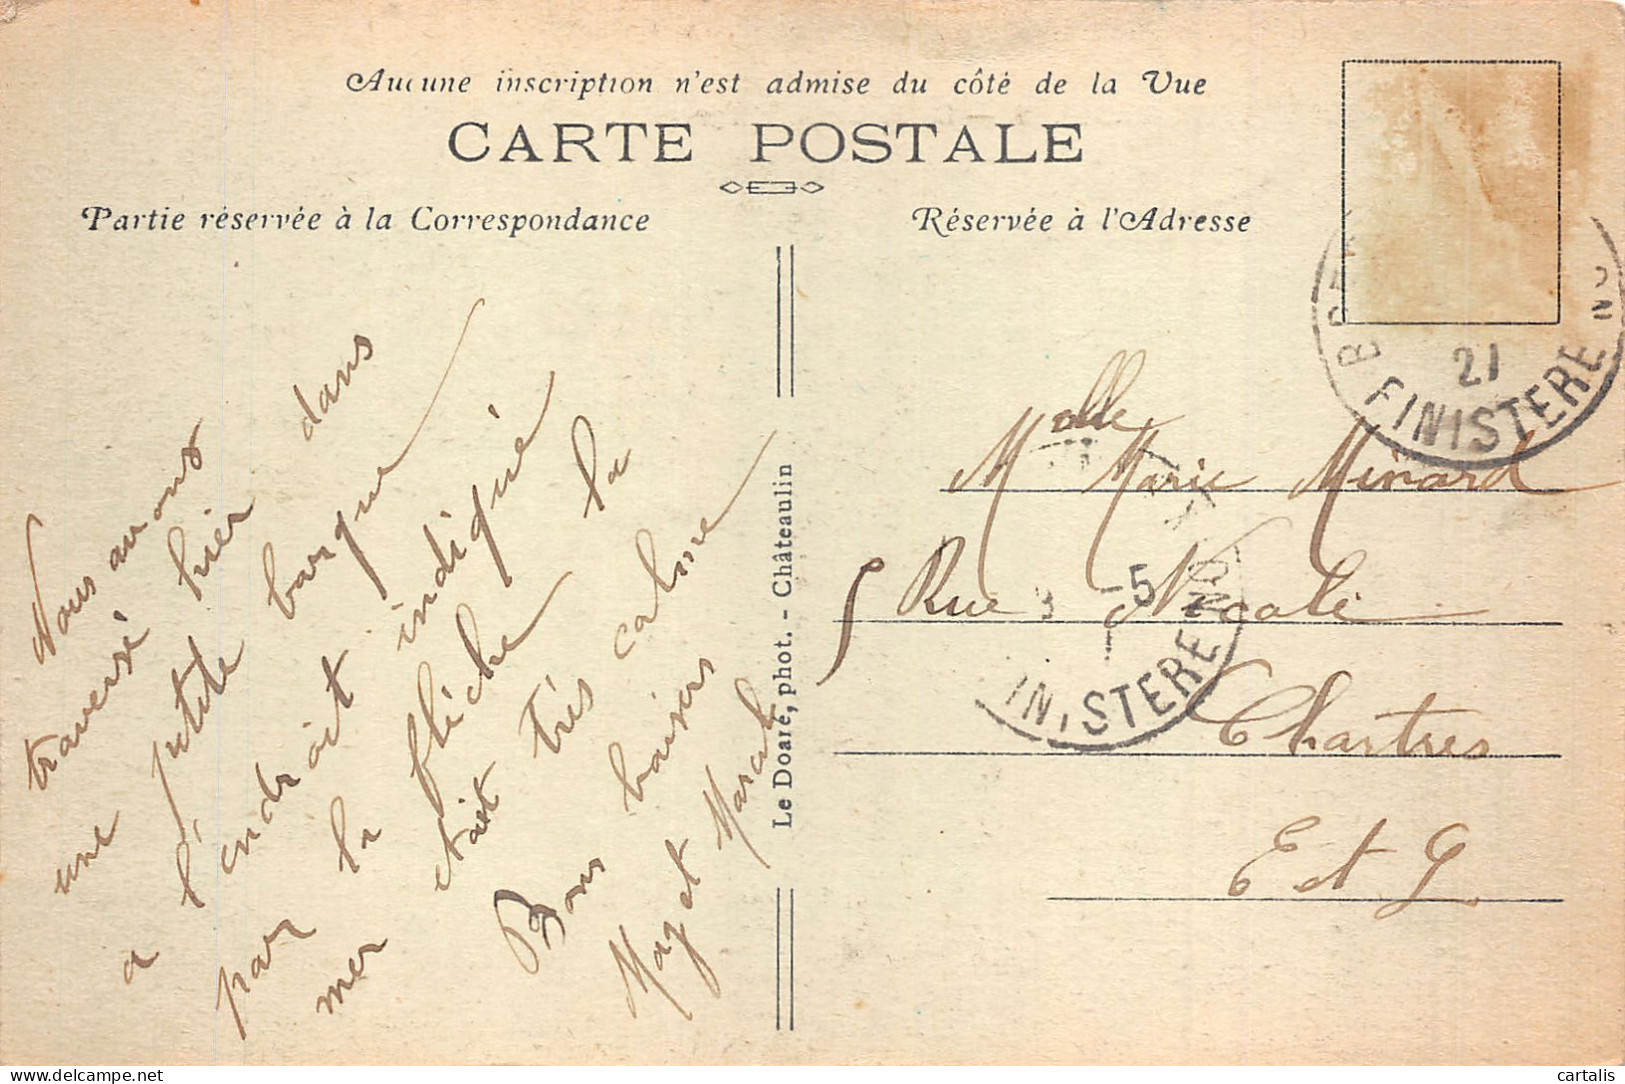 Aucune inscription n'est admise du côté de la Vue
CARTE POSTALE
Partie réservée à la Correspondance
Réservée à l'Adresse
Nous avons
traversé hier dans
une petite barque
a l'endroit indiqué
par la flèche la
mer était très calme
Bons baisers
Mag et Marcel
Le Doaré, phot. - Châteaulin
21
FINISTERE
Melle Marie Minard
5 Rue Nicole
Chartres
E et L
-5
INISTERE
delcampe.net
cartalis